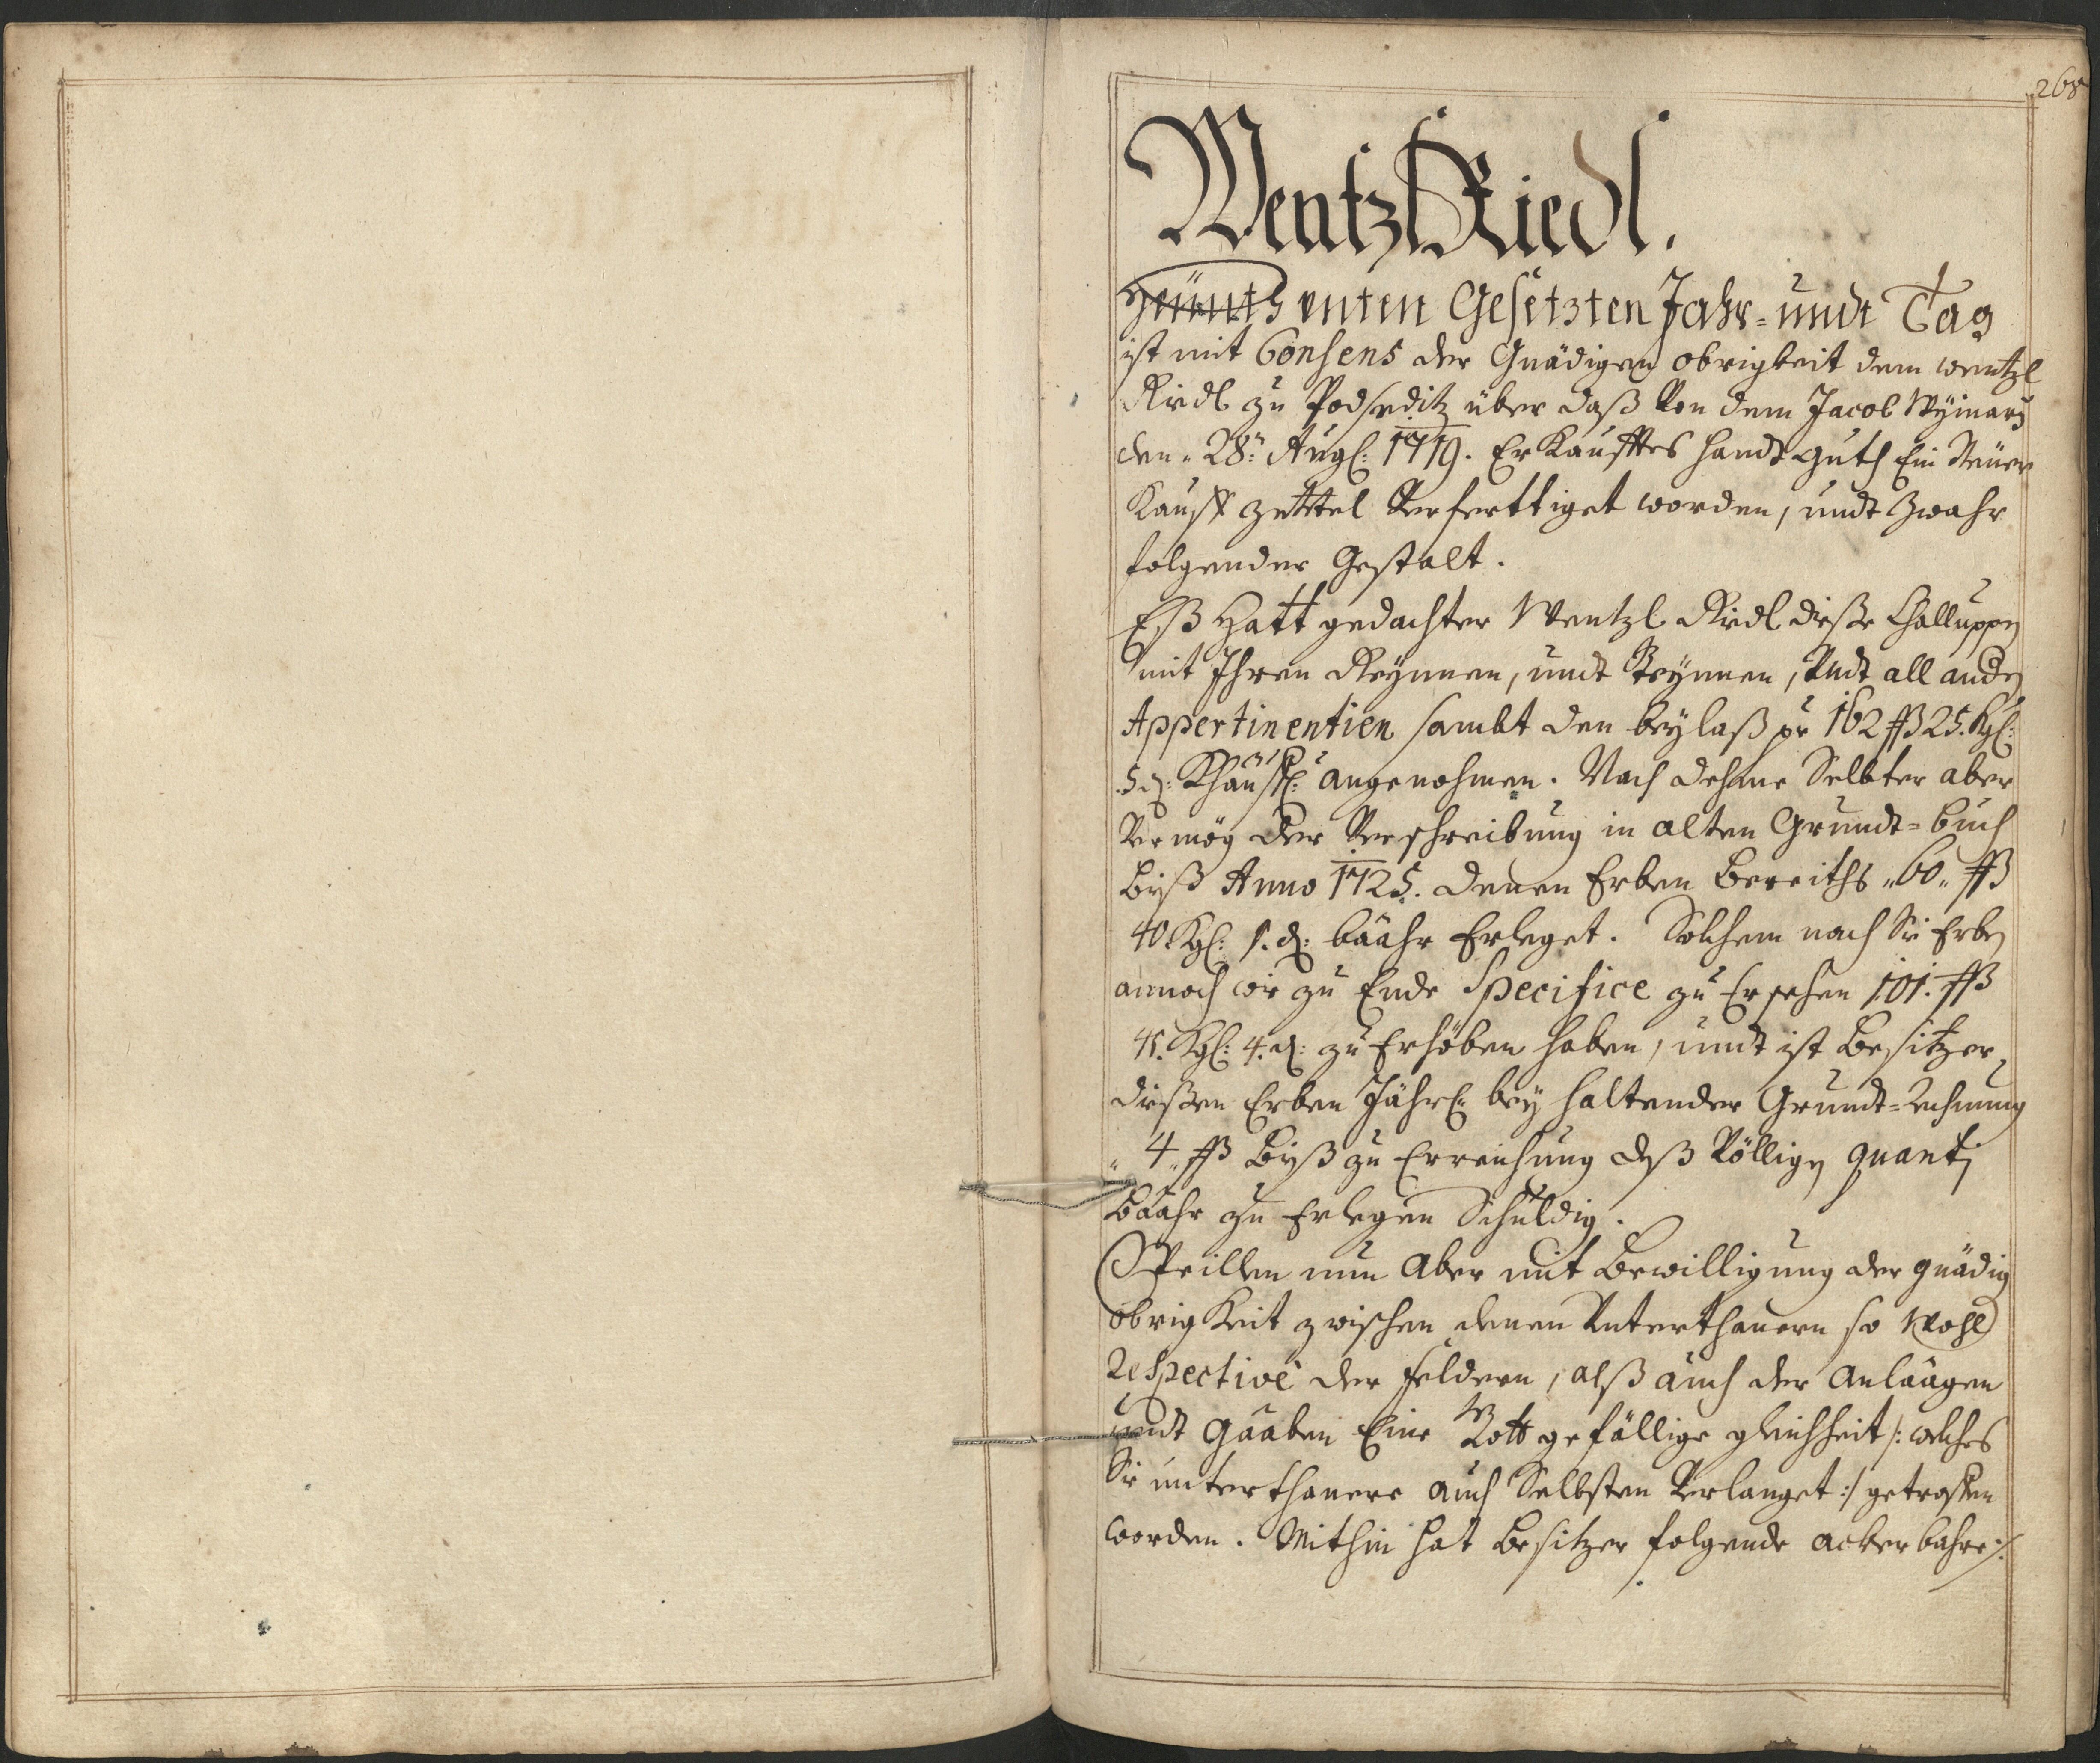 268
Wentzl Riedl.
Heünth unten Gesetzten Jahr= undt Tag
ist mit Consens der Gnädigen obrigkeit dem wentzl
Riedl zu Podseditz über daß Von dem Jacob
den 28: Augl: 1719. Erkaufftes handt guth Ein Neüer
Kauff zettel Verferttiget worden, undt Zwahr
folgender Gestalt.
Eß Hatt gedachter Wentzl Riedl dieße Challuppen
mit Ihren Reynnen, undt Steynnen, Undt all andn
Appertinentien sambt den beylaß pr 162 ßß 25. Kgl:
5 d: Khäuffl: angenohmen. Nach dehme Selbter aber
Vermög der Verschreibung in alten Grundt=buch
biß Anno 1725. denen Erben bereiths „60„ ßß
40. Kgl: 1. d: baahr Erleget. Solchem nach Sie Erben
annoch wie zu Ende Specifice zu Ersehen 101. ßß
45. Kgl: 4. d: zu Erhöben haben, undt ist besitzer
dießen Erben Jährl: bey haltender Grundt=rechnung
„4„ ßß biß zu Erreichung deß Völligen quanti
baahr zu Erlegen Schuldig.
Weillen nun Aber mit bewilligung der gnädig
obrigkeit zwischen denen Unterthanern so Wohl
respectivè der feldern, alß auch der Anlaagen
undt gaaben Eine Gott gefällige gleichheit /: welches
Sie unterthanere auch Selbsten Verlanget :/ getroffen
worden. Mithin hat besitzer folgende ackerbahre ./.